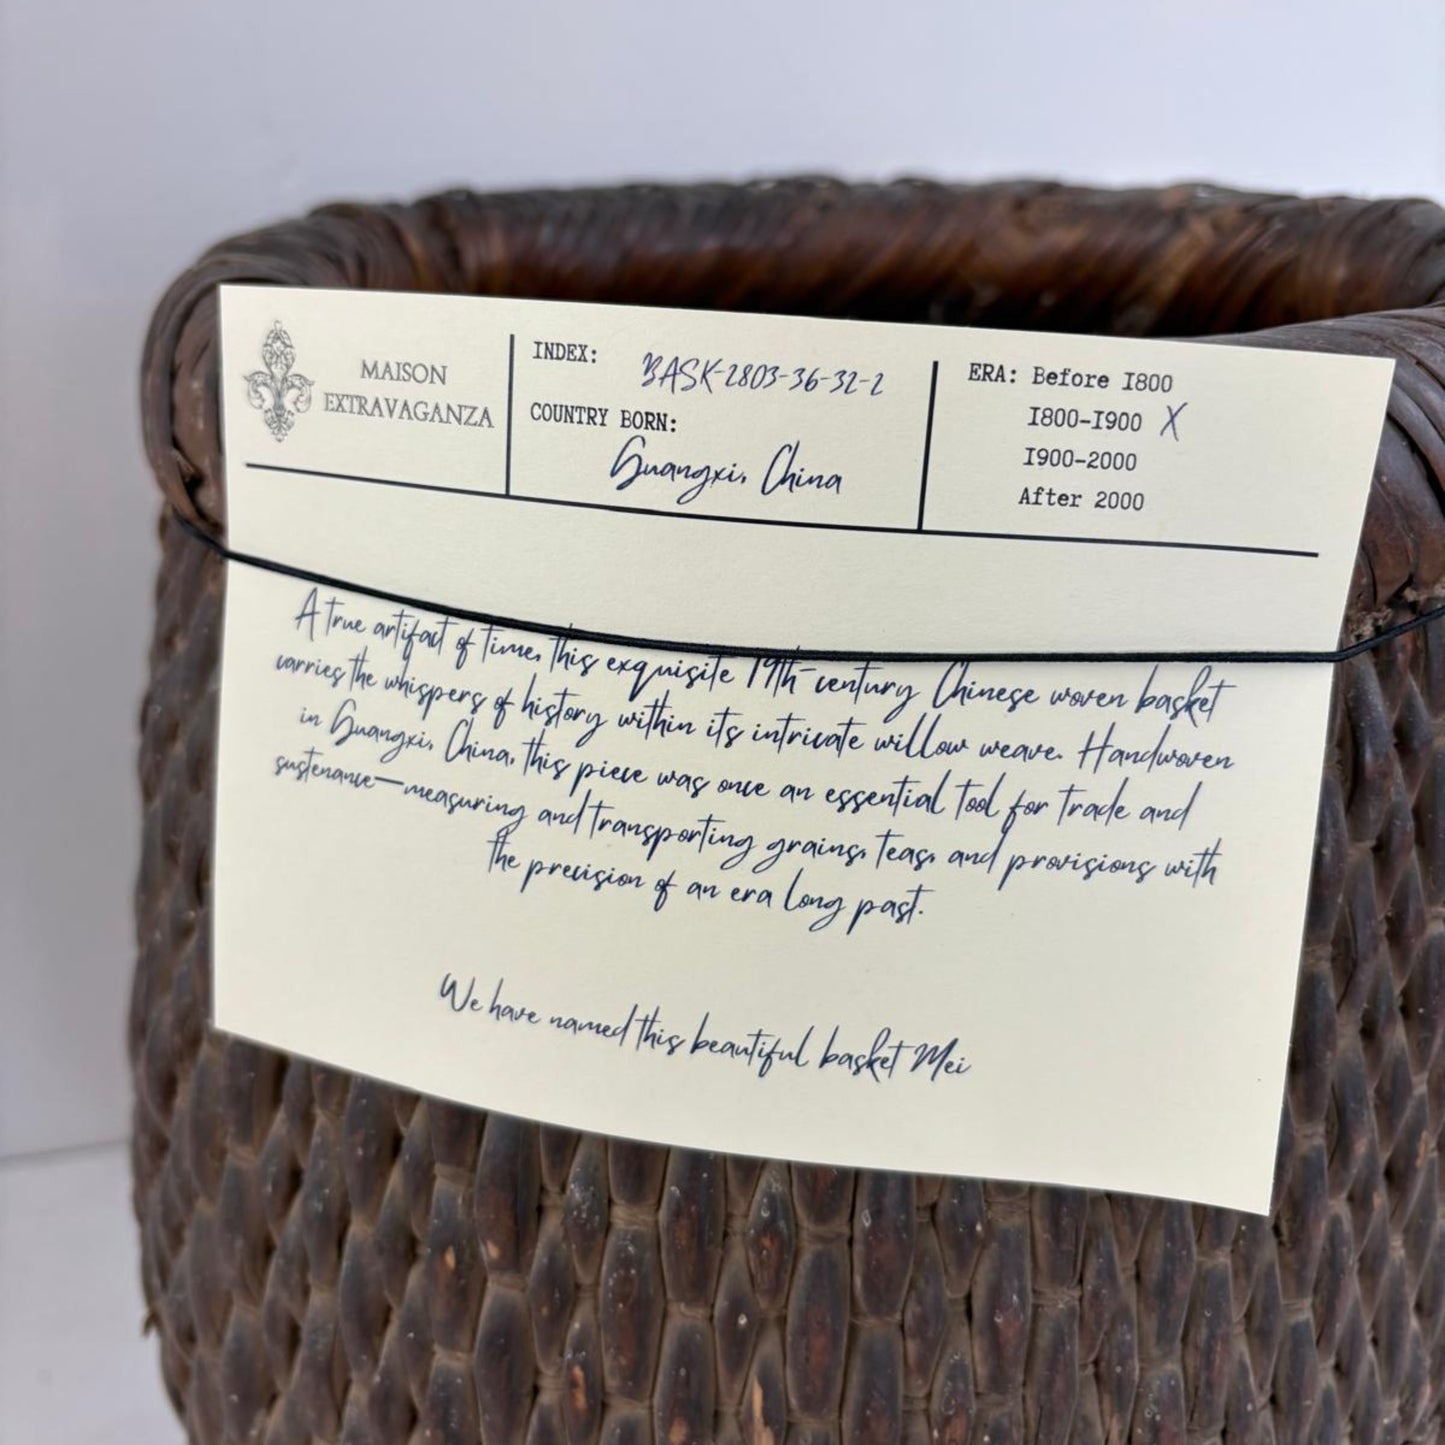 MAISON
EXTRAVAGANZA
INDEX: BASK-2803-36-32-2
COUNTRY BORN:
Guangxi, China
ERA: Before 1800
1800-1900 X
1900-2000
After 2000
A true artifact of time, this exquisite 19th-century Chinese woven basket
carries the whispers of history within its intricate willow weave. Handwoven
in Guangxi, China, this piece was once an essential tool for trade and
sustenance—measuring and transporting grains, teas, and provisions with
the precision of an era long past.
We have named this beautiful basket Mei